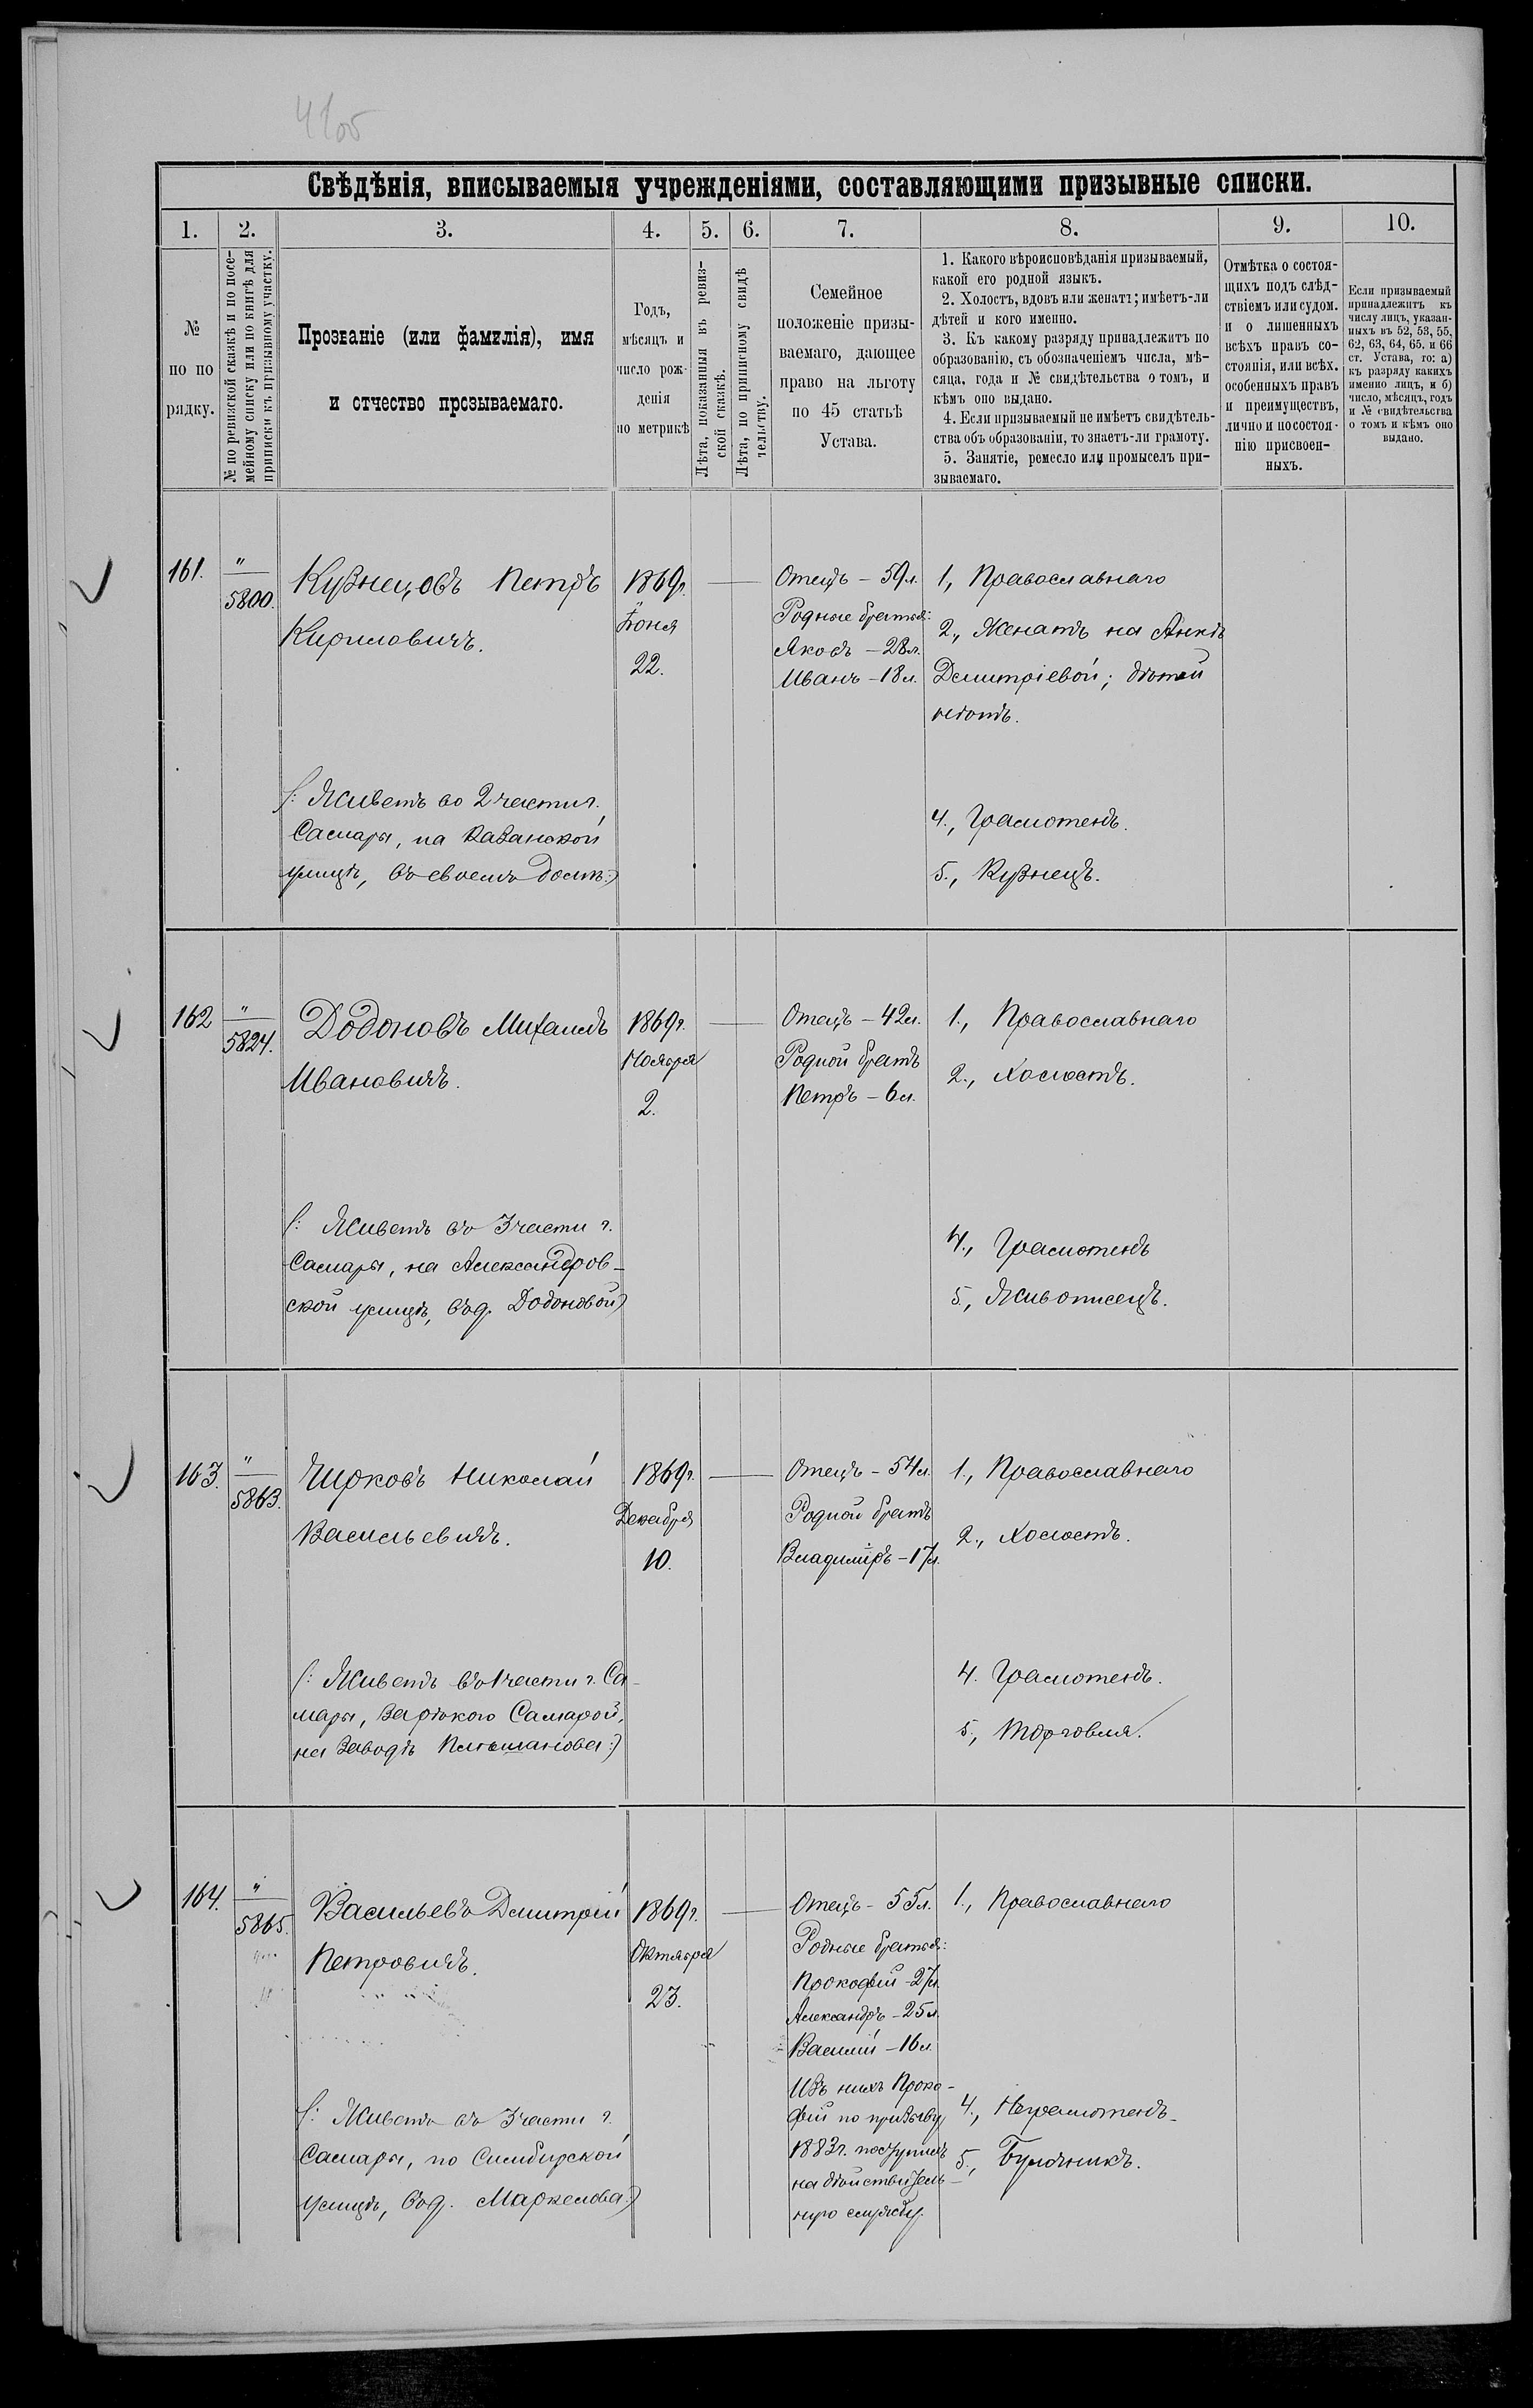 Свѣдѣнія, вписываемыя учрежденіями, составляющими призывные списки.
1. 2. 3. 4. 5. 6. 7. 8. 9. 10.
№
по по
рядку.
№ по ревизской сказкѣ и по посе-
мейному списку или по книгѣ для
приписки къ призывному участку.
Прозваніе (или фамилія), имя
и отчество прозываемаго.
Годъ,
мѣсяцъ и
число рож-
денія
по метрикѣ
Лѣта, показанныя въ ревиз-
ской сказкѣ.
Лѣта, по приписному свидѣ
тельству.
Семейное
положеніе призы-
ваемаго, дающее
право на льготу
по 45 статьѣ
Устава.
1. Какого вѣроисповѣданія призываемый,
какой его родной языкъ.
2. Холостъ, вдовъ или женатъ; имѣетъ-ли
дѣтей и кого именно.
3. Къ какому разряду принадлежитъ по
образованію, съ обозначеніемъ числа, мѣ-
сяца, года и № свидѣтельства о томъ, и
кѣмъ оно выдано.
4. Если призываемый не имѣетъ свидѣтель-
ства объ образованіи, то знаетъ-ли грамоту.
5. Занятіе, ремесло или промыселъ при-
зываемаго.
Отмѣтка о состоя-
щихъ подъ слѣд-
ствіемъ или судом.
и о лишенныхъ
всѣхъ правъ со-
стоянія, или всѣх.
особенныхъ правъ
и преимуществъ,
лично и по состоя-
нію присвоен-
ныхъ.
Если призываемый
принадлежитъ къ
числу лицъ, указан-
ныхъ въ 52, 53, 55,
62, 63, 64, 65, и 66
ст. Устава, то: а)
къ разряду какихъ
именно лицъ, и б)
число, мѣсяцъ, годъ
и № свидѣтельства
о томъ и кѣмъ оно
выдано.
161.
"
5800.
Кузнецовъ Петръ
Кириловичъ.
(: Живетъ во 2 части г.
Самары, на Казанской
улицѣ, въ своемъ домѣ:)
1869г.
Іюня
22.
Отецъ – 59л.
Родные братья:
Яковъ – 28л.
Иванъ – 18л.
1, Православнаго
2, Женатъ на Аннѣ
Димитріевой; дѣтей
нѣтъ.
4., Грамотенъ.
5., Кузнецъ.
162
"
5824.
Додоновъ Михаилъ
Ивановичъ.
(: Живетъ въ 3 части г.
Самары, на Александров-
ской улицѣ, въ д. Додоновой)
1869г.
Ноября
2.
Отецъ – 42л.
Родной братъ
Петръ – 6л.
1., Православнаго
2., Холостъ.
4., Грамотенъ
5., Живописецъ.
163.
"
5863.
Чирковъ Николай
Васильевичъ.
(: Живетъ въ 1 части г. Са-
мары, за рѣкою Самарой,
на заводѣ :)
1869г.
Декабря
10.
Отецъ – 54л.
Родной братъ
Владиміръ – 17л.
1., Православнаго
2., Холостъ.
4. Грамотенъ.
5., Торговля.
164.
"
5865.
Васильевъ Дмитрій
Петровичъ.
(: Живетъ въ 3 части г.
Самары, по Симбирской
улицѣ, въ д. Маркелова:)
1869г.
Октября
23.
Отецъ – 55л.
Родные братья:
Прокофій – 27л.
Александръ – 25л.
Василій – 16л.
Изъ нихъ Проко-
фій по призыву
1883г. поступилъ
на дѣйствитель-
ную службу.
1., Православнаго
4., Неграмотенъ.
5., Булочникъ.